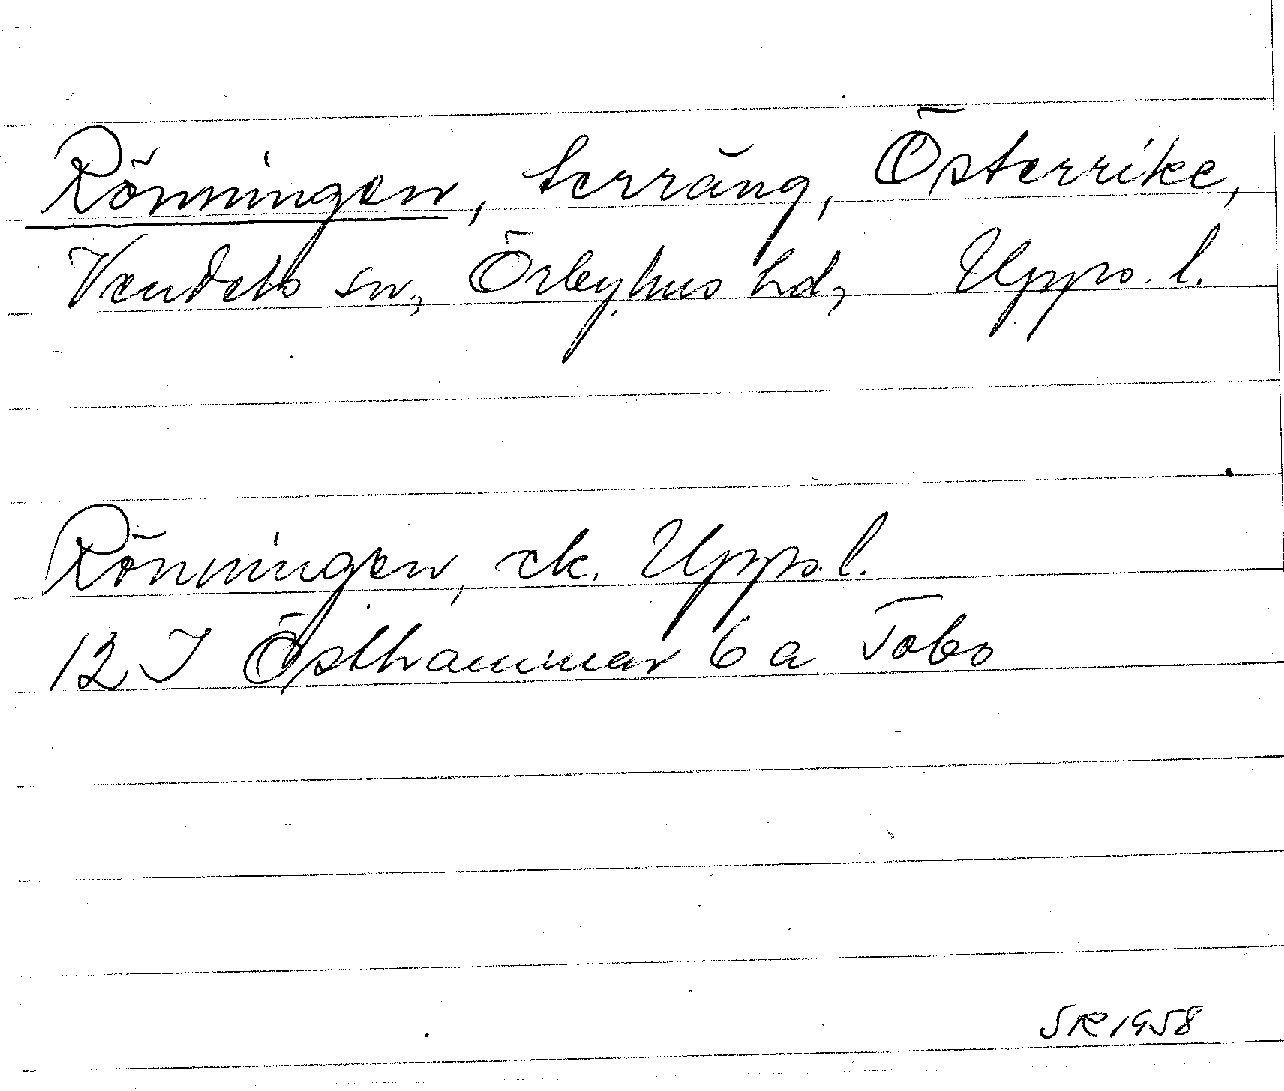 Rönningen, terräng, Österrike,
Vendels sn, Örbyhus hd, Upps. l.
Rönningen, ek. Upps. l.
12 I Östhammar 6 a Tobo
SR 1958